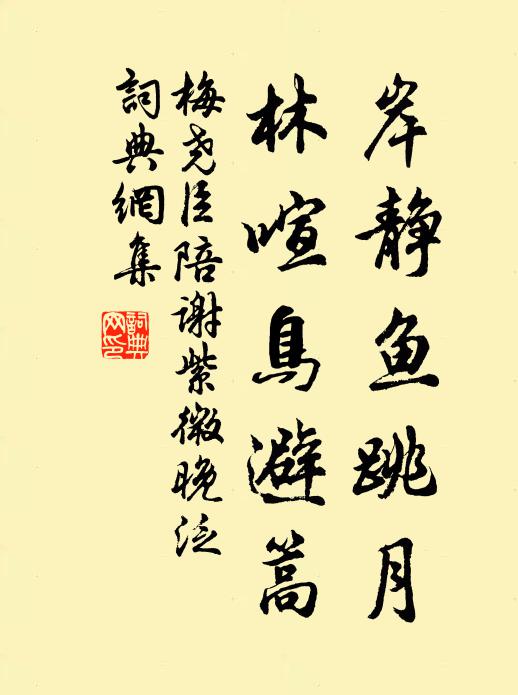 岸静鱼跳月
林喧鳥避篙
梅尧臣陪谢紫微晚泛
詞典網集
詞典網印